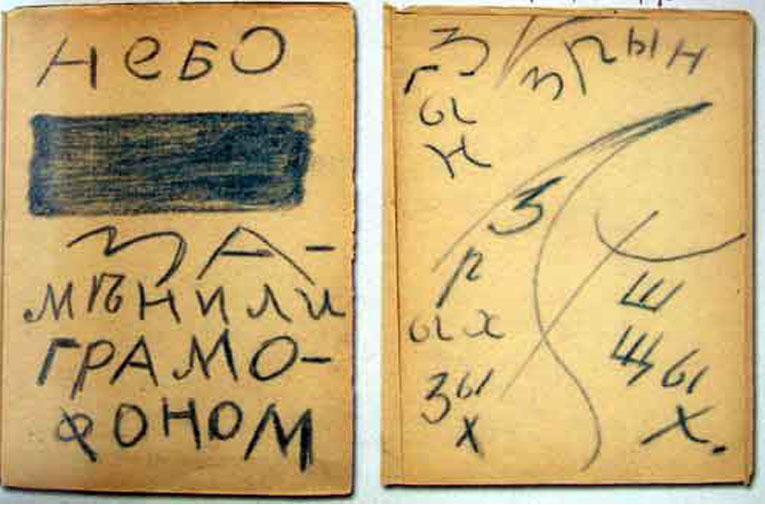 НеБО
ЗА-
мѣнили
ГРАМО-
ФОНОМ
З
г
ы
н
З
р
ых
зы
х
ш
щы
х.